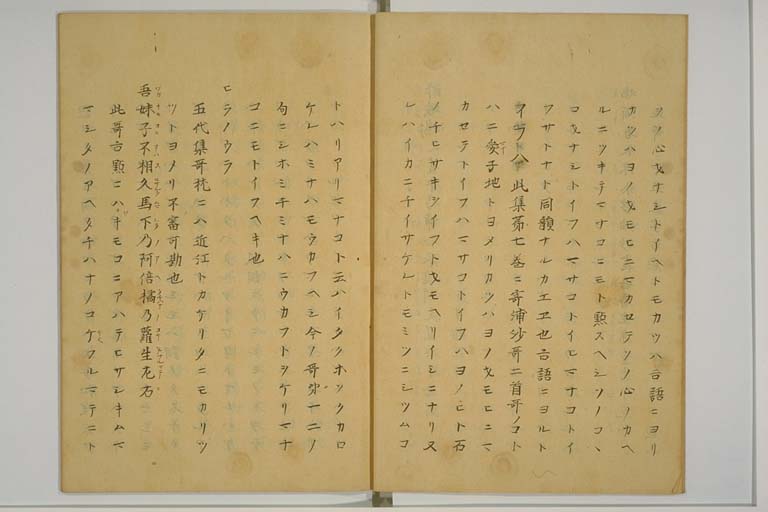 ヲヲ心モナシトイヘトモカツハ言語ニヨリ
カツハヨノオモヒニマカセテソノ心ノカヘ
ルニツキテマサコニモト点スヘシソノコヽ
コモナシトイフハマサコトイヒマナコトイ
フサトナト同韻ナルカエヱ也言語ニヨルト
イフハ此集第七巻ニ寄浦沙哥二首哥ノコト
ハニ愛子地トヨメリカツハヨノオモヒニマ
カセテトイフハマサコトイフハヨノヒト石
ノチヒサキヲイフトオモヘリイシニナリヌ
レハイカニチイサケレトモミツニシツムコ
トハリアリマナコト云ハイタクホソクカロ
ケレハミナハモウカフヘシ今ノ哥弥一二ノ
句ニシホミチミナハニウカフトツケリマナ
コニモトイフヘキ也
ヒラノウラ
五代集哥枕ニハ近江トカケリタニモカリツ
ツトヨメリ不審可勘也
吾妹子不相久馬下乃阿倍橘乃蘿生左右
此哥古点ニハワキモコニアハテヒサシキムマ
マシタノアヘタチハナノコケフルマテニト